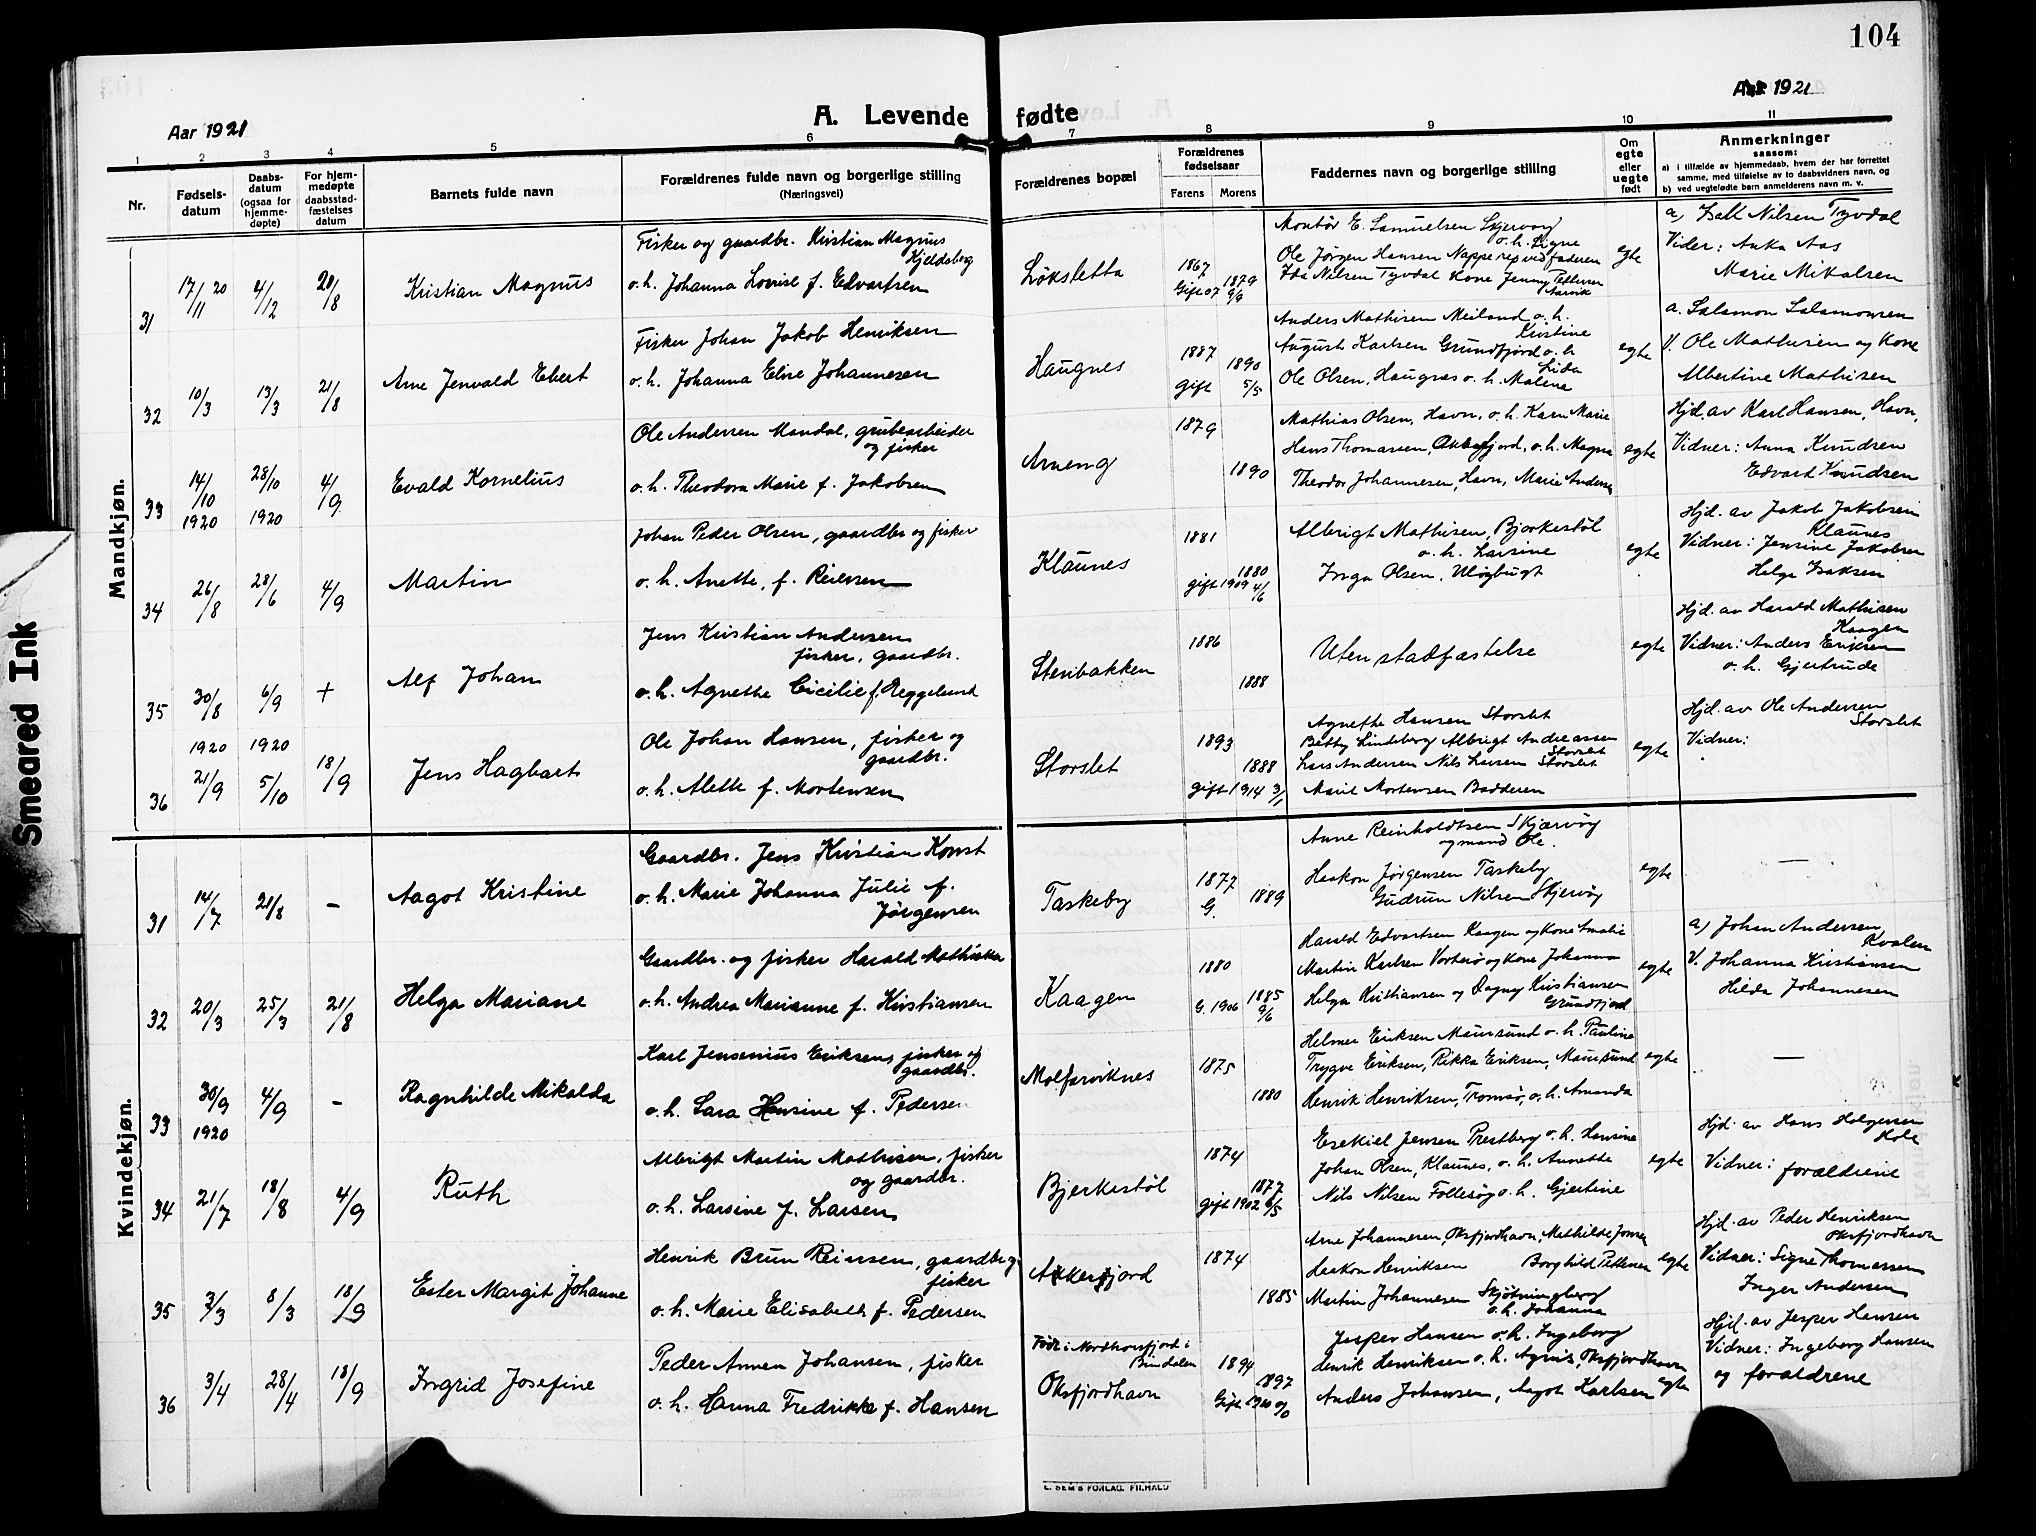 104
Aar 1921
A. Levende fødte
Aar 1921
1 2 3 4 5 6 7 8 9 10 11
Nr.
Fødsels-datum
Daabs-datum (ogsaa for hjemme-døpte)
For hjem-medøpte daabsstad-fæstelses datum
Barnets fulde navn
Forældrenes fulde navn og borgerlige stilling
(Næringsvei)
Forældrenes bopæl
Forældrenes fødselsaar
Farens Morens
Faddernes navn og borgerlige stilling
Om egte eller uegte født
Anmerkninger
saasom:
a) i tilfælde av hjemmedaab, hvem der har forrettet
samme, med tilføielse av to daabsvidners navn, og
b) ved uegtefødte barn anmelderens navn m. v.
Mandkjøn.
31 17/11 20 4/12 20/8 Kristian Magnus
Fisker og gaardbr. Kristian Magnus
Kjeldsberg
o.h. Johanna Lovise f. Edvartsen
Løksletta
1867 1879
Gift 07 9/6
Montør E. Samuelsen Skjervøy
o.h. Signe
Ole Jørgen Hansen Napperep ved faderen
Ida Nilsen Tyvdal Kone Jenny Pettersen
egte
a) Isak Nilsen Tyvdal
Vider: Anka Aas
Marie Mikalsen
32 10/3 13/3 21/8 Arne Jenvald Ebert
Fisker Johan Jakob Henriksen
o.h. Johanna Eline Johannesen
Haugnes
1887 1890
gift 5/5
Anders Mathisen Meiland o.h.
Kristine
August Karlsen Grundfjord o.h
Lida
Ole Olsen, Haugnes o.h. Malene
egte
a. Salamon Salamonsen
V. Ole Mathisen og Kone
Albertine Mathisen
33 14/10 1920 28/10 1920 4/9 Evald Kornelius
Ole Andersen Mandal, grubearbeider
og fisker
o.h. Theodora Marie f. Jakobsen
Arneng
1879 1890
Mathias Olsen, Havn, o.h. Karn Marie
Hans Thomassen, Akkerfjord, o.h. Magna
Theodor Johannesen, Havn, Marie Andersen
egte
Hjd. av Karl Hansen, Havn,
Vidner: Anna Knudsen
Edvard Knudsen
34 26/8 28/6 4/9 Martin
Johan Peder Olsen, gaardbr og fisker
o.h. Anette, f. Reiersen
Klaunes
1881 1880
gift 1909 4/6
Albrigt Mathisen, Bjørkestøl
o.h. Larsine
Inga Olsen, Uløybugt
egte
Hjd. av Jakob Jakobsen
Klaunes
Vidner: Jensine Jakobsen
Helge Isaksen
35 30/8 6/9 + Alf Johan
Jens Kristian Andersen
fisker, gaardbr.
o.h. Agnethe Cicilie f. Heggelund
Stenbakken
1886 1888
Uten stadfæstelse
egte
Hjd. av Harald Mathisen
Kaagen
Vidner: Anders Eriksen
o.h. Gjertrude
36 1920 21/9 1920 5/10 18/9 Jens Hagbart
Ole Johan Hansen, fisker og
gaardbr.
o.h. Alette f. Mortensen
Storslet
1893 1888
gift 1914 3/1
Agnethe Hansen Storslet
Betty Lindeberg Albrigt Andreassen
Storslet
Lars Andersen Nils Larsen Storslet
Marie Mortensen Badderen
egte
Hjd. av Ole Andersen
Storslet
Vidner:
Kvindekjøn.
31 14/7 21/8 - Aagot Kristine
Gaardbr. Jens Kristian Konst
o.h. Marie Johanna Julie f.
Jørgensen
Taskeby
1877 G. 1889
Anne Reinholdtsen Skjærvøy
og mand Ole.
Haakon Jørgensen Taskeby
Gudrun Nilsen Skjervøy
egte
—
32 20/3 25/3 21/8 Helga Mariane
Gaardbr. og fisker Harald Mathisen
o.h. Andrea Marianne f. Kristiansen
Kaagen
1880 1885
G. 1906 9/6
Harald Edvartsen Kaagen og Kone Amalie
Martin Karlsen Vorterø og Kone Johanna
Helga Kristiansen og Dagny Kristiansen
Grundfjord
egte
a) Johan Andersen,
Kvalen
V. Johanna Kristiansen
Hilda Johannesen
33 30/9 1920 4/9 - Ragnhilde Mikalda
Karl Jensenius Eriksen, fisker og
gaardbr.
o.h. Sara Hansine f. Pedersen
Molfarviknes
1875 1880
Helmer Eriksen Maursund o.h. Pauline
Trygve Eriksen, Rikka Eriksen, Maursund
Henrik Henriksen, Tromsø, o.h. Amanda
egte
—
34 21/7 18/8 4/9 Ruth
Albrigt Martin Mathisen, fisker
og gaardbr.
o.h. Larsine f. Larsen
Bjerkestøl
1874 1877
gift 1902 6/5
Esekiel Jensen Prestberg o.h. Hansine
Johan Olsen, Klaunes, o.h. Annette
Nils Nilsen Follesøy o.h. Gjertine
egte
Hjd. av Hans Holgersen
Hole
Vidner: forældrene
35 3/3 8/3 18/9 Ester Margit Johanne
Henrik Brun Reiersen, gaardbr og
fisker
o.h. Marie Elisabeth f. Pedersen
Akkerfjord
1874 1885
Arne Johannesen, Oksfjordhavn, Mathilde Jensen
Haakon Henriksen Borghild Pettersen
Martin Johannesen Skjøtningberg
o.h. Johanna
egte
Hjd. av Peder Henriksen
Oksfjordhavn
Vidner: Signe Thomassen
Inger Andersen
36 3/4 28/4 18/9 Ingrid Josefine
Peder Annen Johansen, fisker
o.h. Hanna Fredrikke f. Hansen
Født i Nordhorsfjord i
Bindalen
Oksfjordhavn
1894 1897
Gift 1920
Jesper Hansen o.h. Ingeborg
Henrik Henriksen o.h. Agnis, Oksfjordhavn
Anders Johansen, Aagot Karlsen
egte
Hjd. av Jesper Hansen
Vidner: Ingeborg Hansen
og forældrene
E. SEM'S FORLAG. F.HALD
Smeared Ink